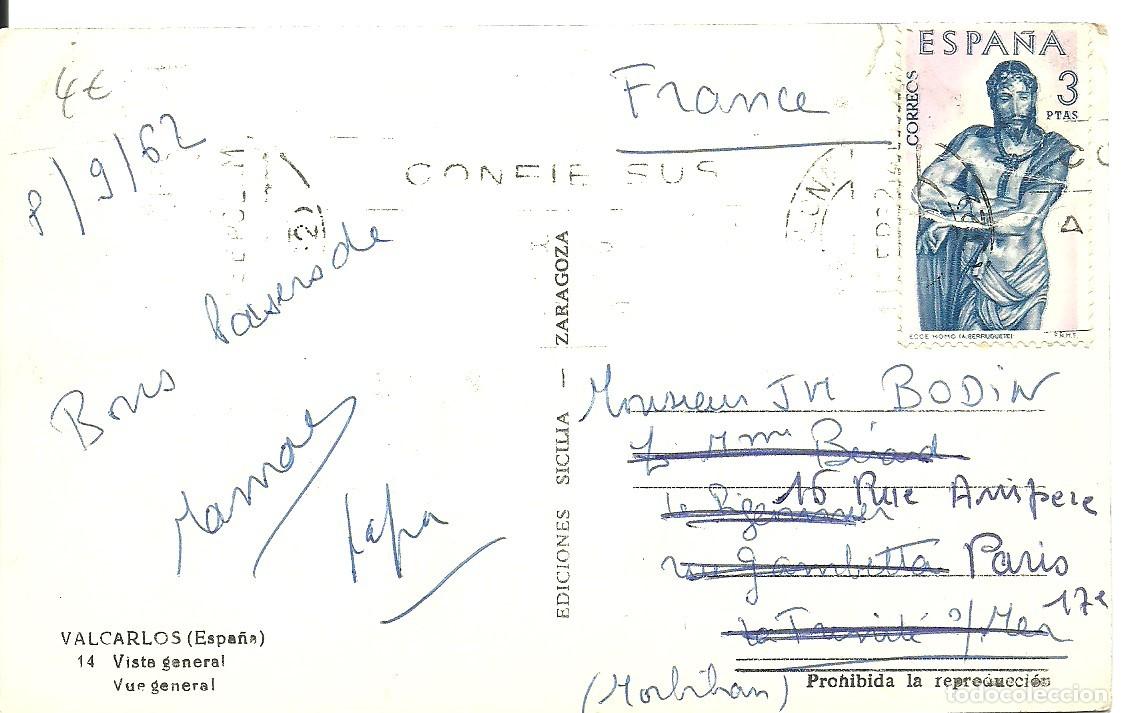 4€
8/9/62
Bons Baisers de
Maman
Papa
VALCARLOS (España)
14 Vista general
Vue general
EDICIONES SICILIA - ZARAGOZA
France
CONFIE SUS
ESPAÑA
CORREOS
3
PTAS
ECCE HOMO (A.BERRUGUETE)
F.N.M.T.
Monsieur JM BODIN
Mme Bérard
Le Pigeonnier
16 Rue Ampere
rue Gambetta Paris
17e
La Trinité s/Mer
(Morbihan)
Prohibida la reproducción
todocoleccion